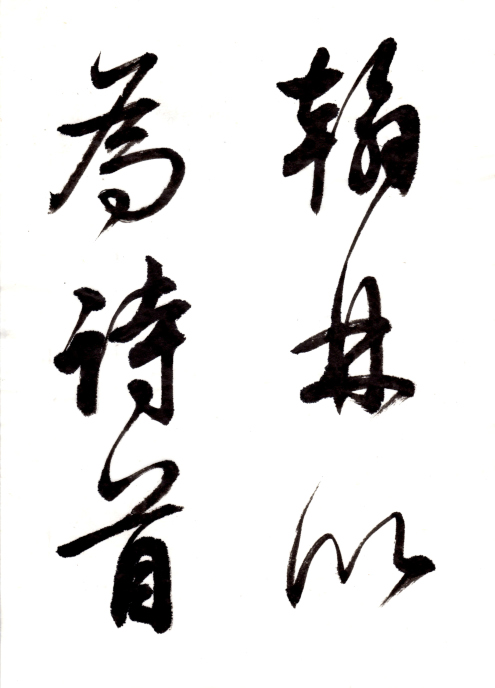 翰林以
為诗首